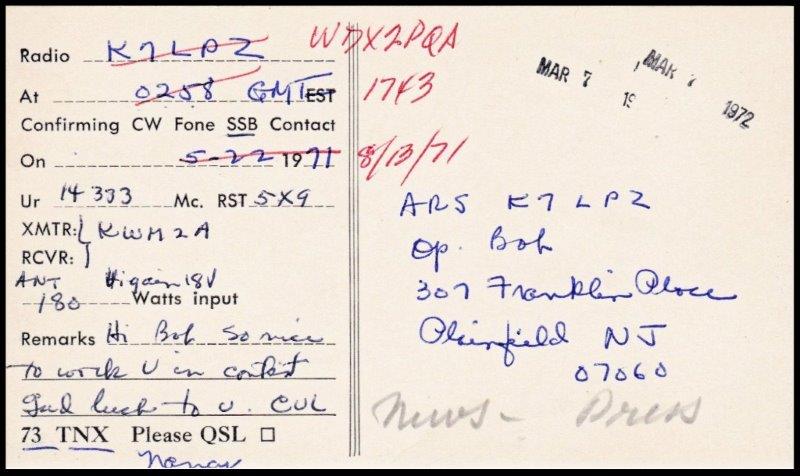 Radio K7LPZ WDX2PQA
At 0258 GMT EST 1743
Confirming CW Fone SSB Contact
On 5-22 1971 8/13/71
Ur 14 333 Mc. RST 5X9
XMTR: KWM2A
RCVR:
ANT Higain 18V
180 Watts input
Remarks Hi Bob So nice
to work U in contest
Gud luck to U. CUL
73 TNX Please QSL □
MAR 7 19
MAR 7 1972
ARS K7LPZ
Op. Bob
307 Franklin Place
Plainfield NJ
07060
News - Press